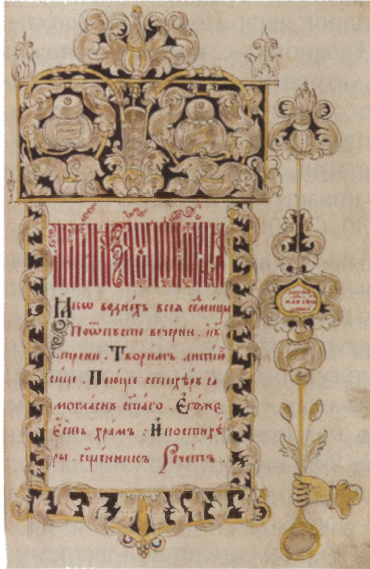 Ꙗкѡ воднех всеѧ седмицы
Поѿпꙋсте вечерни . иꙋ
трени . Творимъ литию
сице . Поюще стихѣрꙋ са
могласнꙋ ст҃аго . Егѡже
есть храмъ . Ипостихѣ
ры . сщ҃енникъ Речетъ .